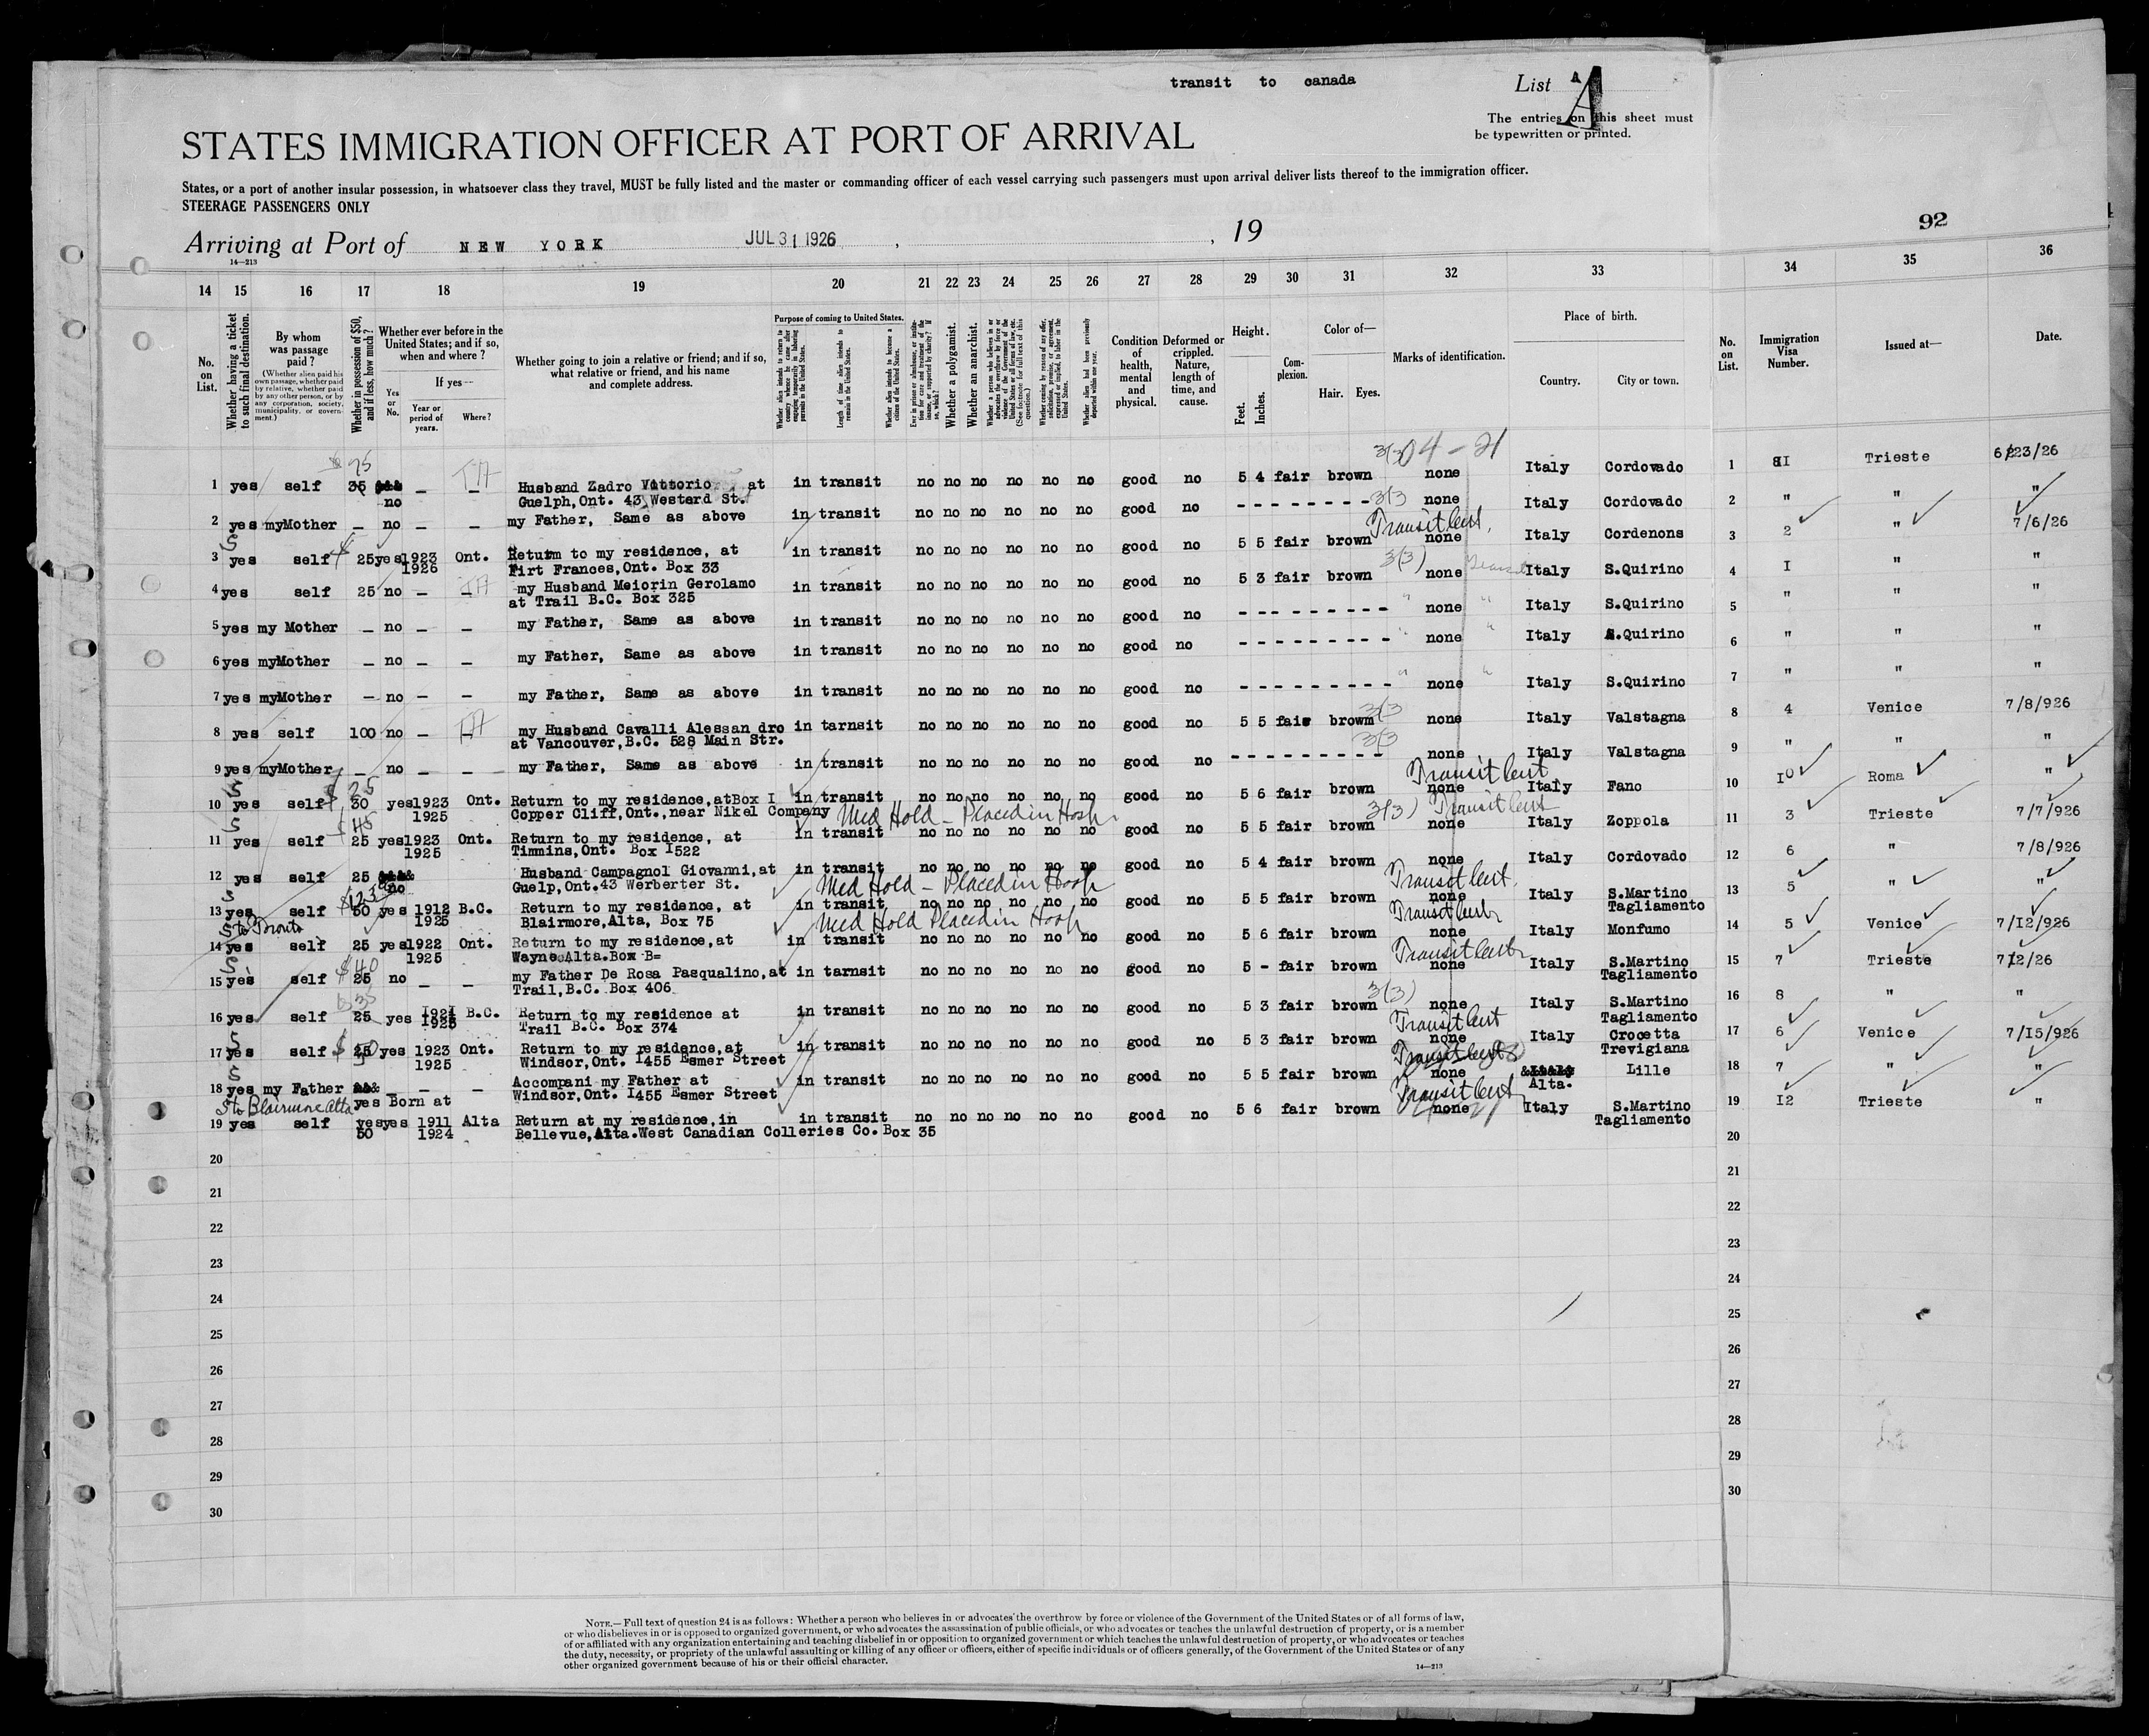 transit to canada
List A
A
The entries on this sheet must
be typewritten or printed.
STATES IMMIGRATION OFFICER AT PORT OF ARRIVAL
States, or a port of another insular possession, in whatsoever class they travel, MUST be fully listed and the master or commanding officer of each vessel carrying such passengers must upon arrival deliver lists thereof to the immigration officer.
STEERAGE PASSENGERS ONLY
92
Arriving at Port of NEW YORK JUL 31 1926 , , 19
14—213
14 15 16 17 18 19 20 21 22 23 24 25 26 27 28 29 30 31 32 33 34 35 36
No. on List.
Whether having a ticket to such final destination.
By whom was passage paid?
(Whether alien paid his own passage, whether paid by relative, whether paid by any other person, or by any corporation, society, municipality, or government.)
Whether in possession of $50, and if less, how much?
Whether ever before in the United States; and if so, when and where?
Yes or No.
If yes—
Year or period of years.
Where?
Whether going to join a relative or friend; and if so, what relative or friend, and his name and complete address.
Purpose of coming to United States.
Whether alien intends to return to country whence he came after engaging temporarily in laboring pursuits in the United States.
Length of time alien intends to remain in the United States.
Whether alien intends to become a citizen of the United States.
Whether a polygamist.
Whether an anarchist.
Condition of health, mental and physical.
Deformed or crippled. Nature, length of time, and cause.
Height.
Feet.
Inches.
Complexion.
Color of—
Hair. Eyes.
Marks of identification.
Place of birth.
Country. City or town.
No. on List.
Immigration Visa Number.
Issued at—
Date.
1 yes self 35 no — — Husband Zadro Vittorio, at in transit no no no no no no good no 5 4 fair brown none Italy Cordovado 1 Trieste
Guelph,Ont. 43 Westerd St.
2 yes myMother — no — — my Father, Same as above in transit no no no no no no good no - - - - - - - - - none Italy Cordovado 2 " " "
Transit Cert.
3 yes self 25 yes 1923 Ont. Return to my residence, at in transit no no no no no no good no 5 5 fair brown none Italy Cordenons 3 2 " 7/6/26
1926 Firt Frances,Ont. Box 33
4 yes self 25 no — — my Husband Meiorin Gerolamo in transit no no no no no no good no 5 3 fair brown none Italy S.Quirino 4 I " "
at Trail B.C. Box 325
5 yes my Mother — no — — my Father, Same as above in transit no no no no no no good no - - - - - - - - - none Italy S.Quirino 5 " " "
6 yes myMother — no — — my Father, Same as above in transit no no no no no no good no - - - - - - - - - none Italy S.Quirino 6 " " "
7 yes myMother — no — — my Father, Same as above in transit no no no no no no good no - - - - - - - - - none Italy S.Quirino 7 " " "
8 yes self 100 no — — my Husband Cavalli Alessan dro in tarnsit no no no no no no good no 5 5 fair brown none Italy Valstagna 8 4 Venice 7/8/926
at Vancouver,B.C. 528 Main Str.
9 yes myMother — no — — my Father, Same as above in transit no no no no no no good no - - - - - - - - - none Italy Valstagna 9 " " "
Transit Cert
10 yes self 30 yes 1923 Ont. Return to my residence,atBox I in transit no no no no no no good no 5 6 fair brown none Italy Fano 10 I0 Roma "
1925 Copper Cliff,Ont.,near Nikel Company
Med Hold - Placed in Hosp. Transit Cert
11 yes self 25 yes 1923 Ont. Return to my residence, at in transit no no no no no no good no 5 5 fair brown none Italy Zoppola 11 3 Trieste 7/7/926
1925 Timmins,Ont. Box I522
12 yes self 25 no Husband Campagnol Giovanni,at in transit no no no no no no good no 5 4 fair brown none Italy Cordovado 12 6 " 7/8/926
Guelp,Ont.43 Werberter St.
Med Hold - Placed in Hosp Transit Cert.
13 yes self 50 yes 1912 B.C. Return to my residence, at in transit no no no no no no good no 5 5 fair brown none Italy S.Martino 13 5 " "
1925 Blairmore,Alta, Box 75 Tagliamento
Med Hold Placed in Hosp Transit Cert
14 yes self 25 yes 1922 Ont. Return to my residence,at in transit no no no no no no good no 5 6 fair brown none Italy Monfumo 14 5 Venice 7/12/926
1925 Wayne,Alta.Box B=
$40 Transit Cert
15 yes self 25 no — — my Father De Rosa Pasqualino,at in tarnsit no no no no no no good no 5 - fair brown none Italy S.Martino 15 7 Trieste 7/2/26
Trail,B.C. Box 406 Tagliamento
16 yes self 25 yes I92I B.C. Return to my residence at in transit no no no no no no good no 5 3 fair brown none Italy S.Martino 16 8 " "
I925 Trail B.C. Box 374 Tagliamento
Transit Cert
17 yes self 25 yes 1923 Ont. Return to my residence,at in transit no no no no no no good no 5 3 fair brown none Italy Crocetta 17 6 Venice 7/15/926
1925 Windsor,Ont. I455 Esmer Street Trevigiana
18 yes my Father — — — Accompani my Father at in transit no no no no no no good no 5 5 fair brown none Alta. Lille 18 7 " "
yes Born at Windsor,Ont. I455 Esmer Street
Blairmore Alta Transit Cert
19 yes self yes yes 1911 Alta Return at my residence,in in transit no no no no no no good no 5 6 fair brown none Italy S.Martino 19 I2 Trieste "
50 1924 Bellevue,Alta.West Canadian Colleries Co. Box 35 Tagliamento
20 20
21 21
22 22
23 23
24 24
25 25
26 26
27 27
28 28
29 29
30 30
NOTE.—Full text of question 24 is as follows: Whether a person who believes in or advocates the overthrow by force or violence of the Government of the United States or of all forms of law,
or who disbelieves in or is opposed to organized government, or who advocates the assassination of public officials, or who advocates or teaches the unlawful destruction of property, or is a member
of or affiliated with any organization entertaining and teaching disbelief in or opposition to organized government or which teaches the unlawful destruction of property, or who advocates or teaches
the duty, necessity, or propriety of the unlawful assaulting or killing of any officer or officers, either of specific individuals or of officers generally, of the Government of the United States or of any
other organized government because of his or their official character.
14—213